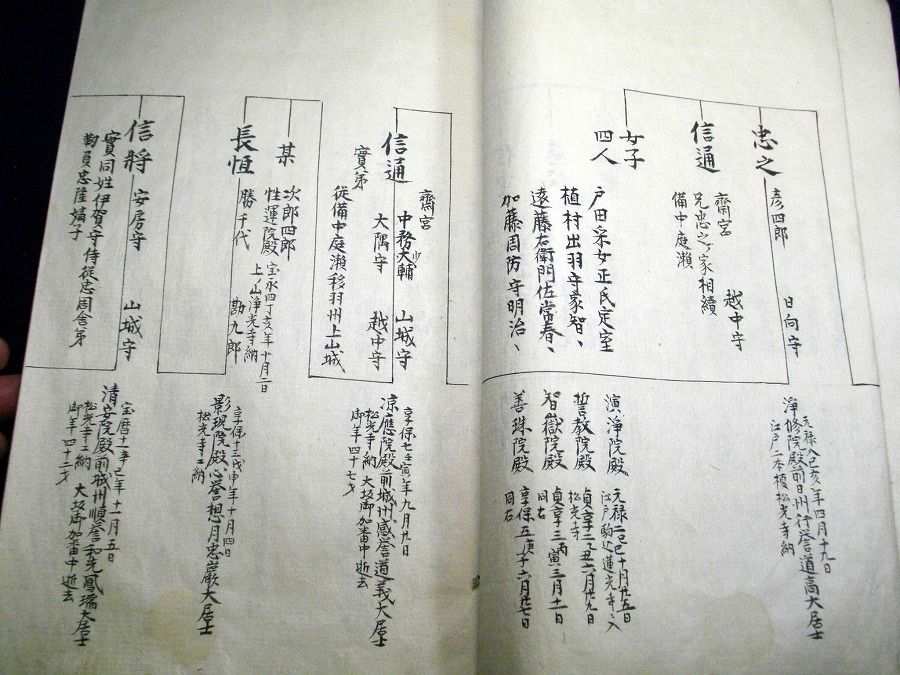 忠之 彦四郎 日向守
元禄八乙亥年四月十九日
浄修院殿前日州行誉道高大居士
江戸二本榎松光寺納
信通 齋宮 越中守
兄忠之ノ家相續
備中庭瀬
女子
四人
戸田采女正氏定室
植村出羽守家智、
遠藤右衛門佐常春、
加藤周防守明治、
演浄院殿 元禄二己巳十月廿五日
江戸駒込蓮光寺ニ入
誓教院殿 貞享二乙丑六月廿九日
松光寺
智獄院殿 貞享三丙寅三月十一日
同右
善珠院殿 享保五庚子六月廿七日
同右
信通 齋宮 中務大輔 山城守
少
大隅守 越中守
實弟
従備中庭瀬移羽州上山城
享保七壬寅年九月九日
凉應院殿前城州感誉道義大居士
松光寺納 大坂御加番中逝去
御年四十七才
某 次郎四郎
性運院殿 宝永四丁亥年十月二日
上ノ山浄光寺納
長恒 勝千代 勘九郎
享保十三戊申年十月四日
影現院殿心誉想月忠巌大居士
松光寺ニ納
信將 安房守 山城守
實同姓伊賀守侍従忠周舎弟
靱員忠隆嫡子
宝暦十一辛巳年十一月五日
清安院殿前城州順誉和光鳳瑞大居士
松光寺ニ納 大坂御加番中逝去
御年四十二才